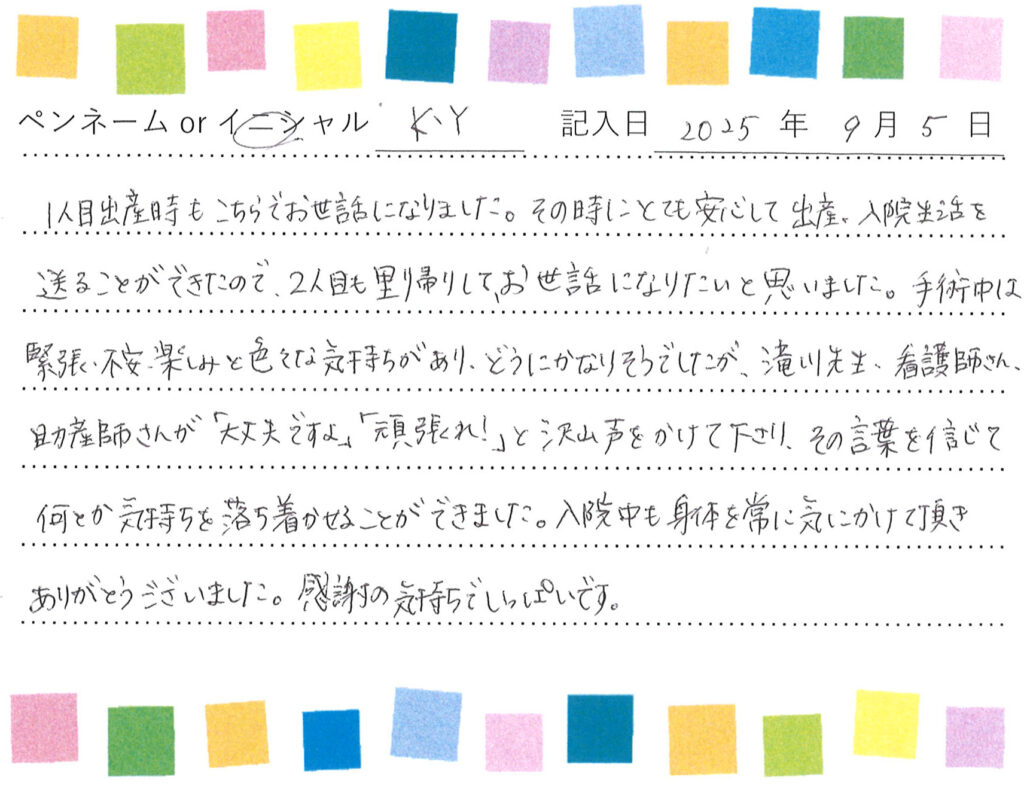 ペンネーム or イニシャル K・Y 記入日 2025 年 9 月 5 日
1人目出産時もこちらでお世話になりました。その時にとても安心して出産、入院生活を
送ることができたので、2人目も里り帰りして、お世話になりたいと思いました。手術中は
緊張、不安、楽しみと色々な気持ちがあり、どうにかなりそうでしたが、滝川先生、看護師さん、
助産師さんが「大丈夫ですよ」「頑張れ!」と沢山声をかけて下さり、その言葉を信じて
何とか気持ちを落ち着かせることができました。入院中も身体を常に気にかけて頂き
ありがとうございました。感謝の気持ちでいっぱいです。